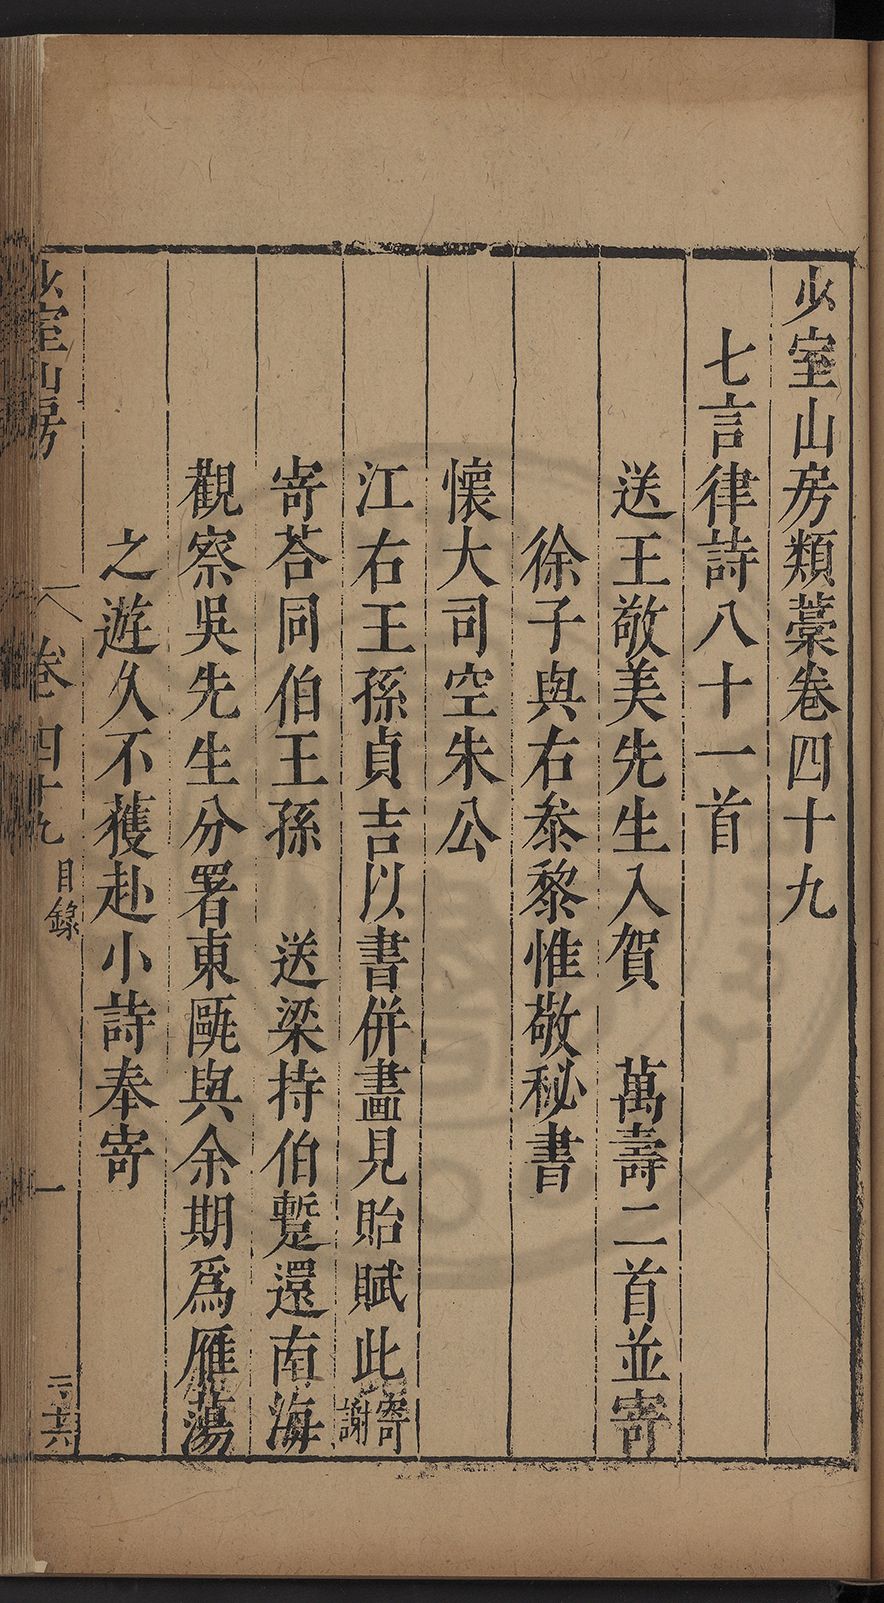 少室山房類藁卷四十九
七言律詩八十一首
送王敬美先生入賀　萬壽二首並寄
徐子與右叅黎惟敬秘書
懷大司空朱公
江右王孫貞吉以書併畫見貽賦此寄謝
寄荅同伯王孫　送梁持伯蹔還南海
觀察吳先生分署東甌與余期爲雁蕩
之遊久不獲赴小詩奉寄
少室山房　卷四十九　目錄　一